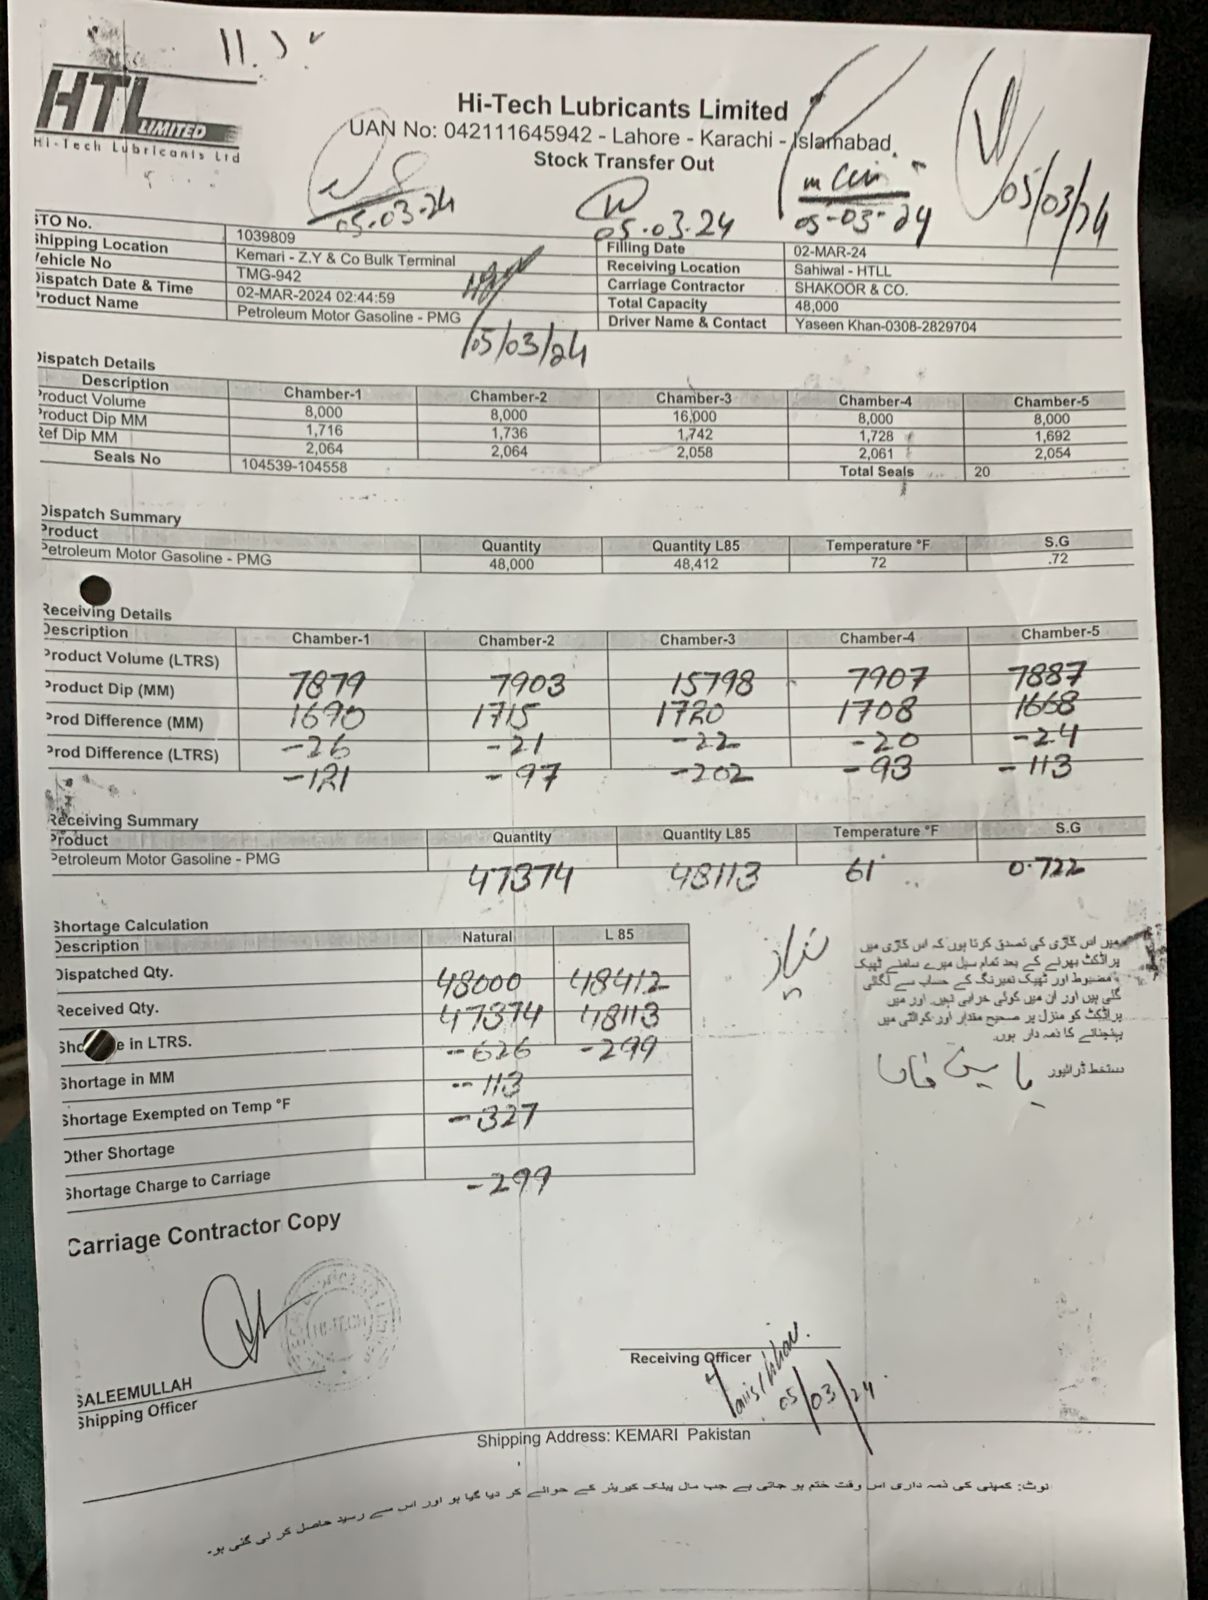 HTL LIMITED
Hi-Tech Lubricants Ltd
Hi-Tech Lubricants Limited
UAN No: 042111645942 - Lahore - Karachi - Islamabad
Stock Transfer Out
05.03.24
05.03.24
05-03-24
05/03/24
STO No. 1039809 Filling Date 02-MAR-24
Shipping Location Kemari - Z.Y & Co Bulk Terminal Receiving Location Sahiwal - HTLL
Vehicle No TMG-942 Carriage Contractor SHAKOOR & CO.
Dispatch Date & Time 02-MAR-2024 02:44:59 Total Capacity 48,000
Product Name Petroleum Motor Gasoline - PMG Driver Name & Contact Yaseen Khan-0308-2829704
05/03/24
Dispatch Details
Description Chamber-1 Chamber-2 Chamber-3 Chamber-4 Chamber-5
Product Volume 8,000 8,000 16,000 8,000 8,000
Product Dip MM 1,716 1,736 1,742 1,728 1,692
Ref Dip MM 2,064 2,064 2,058 2,061 2,054
Seals No 104539-104558 Total Seals 20
Dispatch Summary
Product Quantity Quantity L85 Temperature °F S.G
Petroleum Motor Gasoline - PMG 48,000 48,412 72 .72
Receiving Details
Description Chamber-1 Chamber-2 Chamber-3 Chamber-4 Chamber-5
Product Volume (LTRS) 7879 7903 15798 7907 7887
Product Dip (MM) 1690 1715 1720 1708 1668
Prod Difference (MM) -26 -21 -22 -20 -24
Prod Difference (LTRS) -121 -97 -202 -93 -113
Receiving Summary
Product Quantity Quantity L85 Temperature °F S.G
Petroleum Motor Gasoline - PMG 47374 48113 61 0.722
Shortage Calculation
Description Natural L 85
Dispatched Qty. 48000 48412
Received Qty. 47374 48113
e in LTRS. -626 -299
Shortage in MM -113
Shortage Exempted on Temp °F -327
Other Shortage
Shortage Charge to Carriage -299
میں اس گاڑی کی تصدق کرتا ہوں کہ اس گاڑی میں
پراڈکٹ بھرنے کے بعد تمام سیل میرے سامنے ٹھیک
مضبوط اور ٹھیک نمبرنگ کے حساب سے لگائی
گئی ہیں اور ان میں کوئی خرابی نہیں اور میں
پراڈکٹ کو منزل پر صحیح مقدار اور کوالٹی میں
پہنچانے کا ذمہ دار ہوں.
دستخط ڈرائیور یاسین خان
Carriage Contractor Copy
HI-TECH
SALEEMULLAH
Shipping Officer
Receiving Officer
05/03/24
Shipping Address: KEMARI Pakistan
نوٹ: کمپنی کی ذمہ داری اس وقت ختم ہو جاتی ہے جب مال پبلک کیریئر کے حوالے کر دیا گیا ہو اور اس سے رسید حاصل کر لی گئی ہو۔